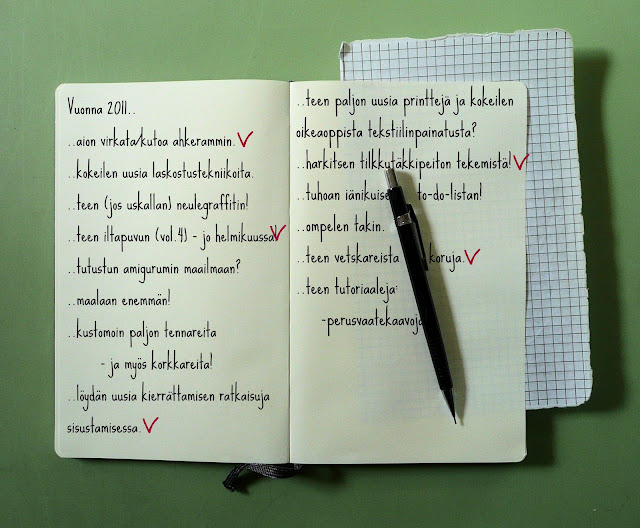 Vuonna 2011..
..aion virkata/kutoa ahkerammin.
..kokeilen uusia laskostustekniikoita.
..teen (jos uskallan) neulegraffitin!
..teen iltapuvun (vol.4) - jo helmikuussa!
..tutustun amigurumin maailmaan?
..maalaan enemmän!
..kustomoin paljon tennareita
- ja myös korkkareita!
..löydän uusia kierrättämisen ratkaisuja
sisustamisessa.
..teen paljon uusia printtejä ja kokeilen
oikeaoppista tekstiilinpainatusta?
..harkitsen tilkkutäkkipeiton tekemistä!
..tuhoan to-do-listan!
..ompelen takin.
..teen vetskareista koruja.
..teen tutoriaaleja:
-perusvaatekaavoja